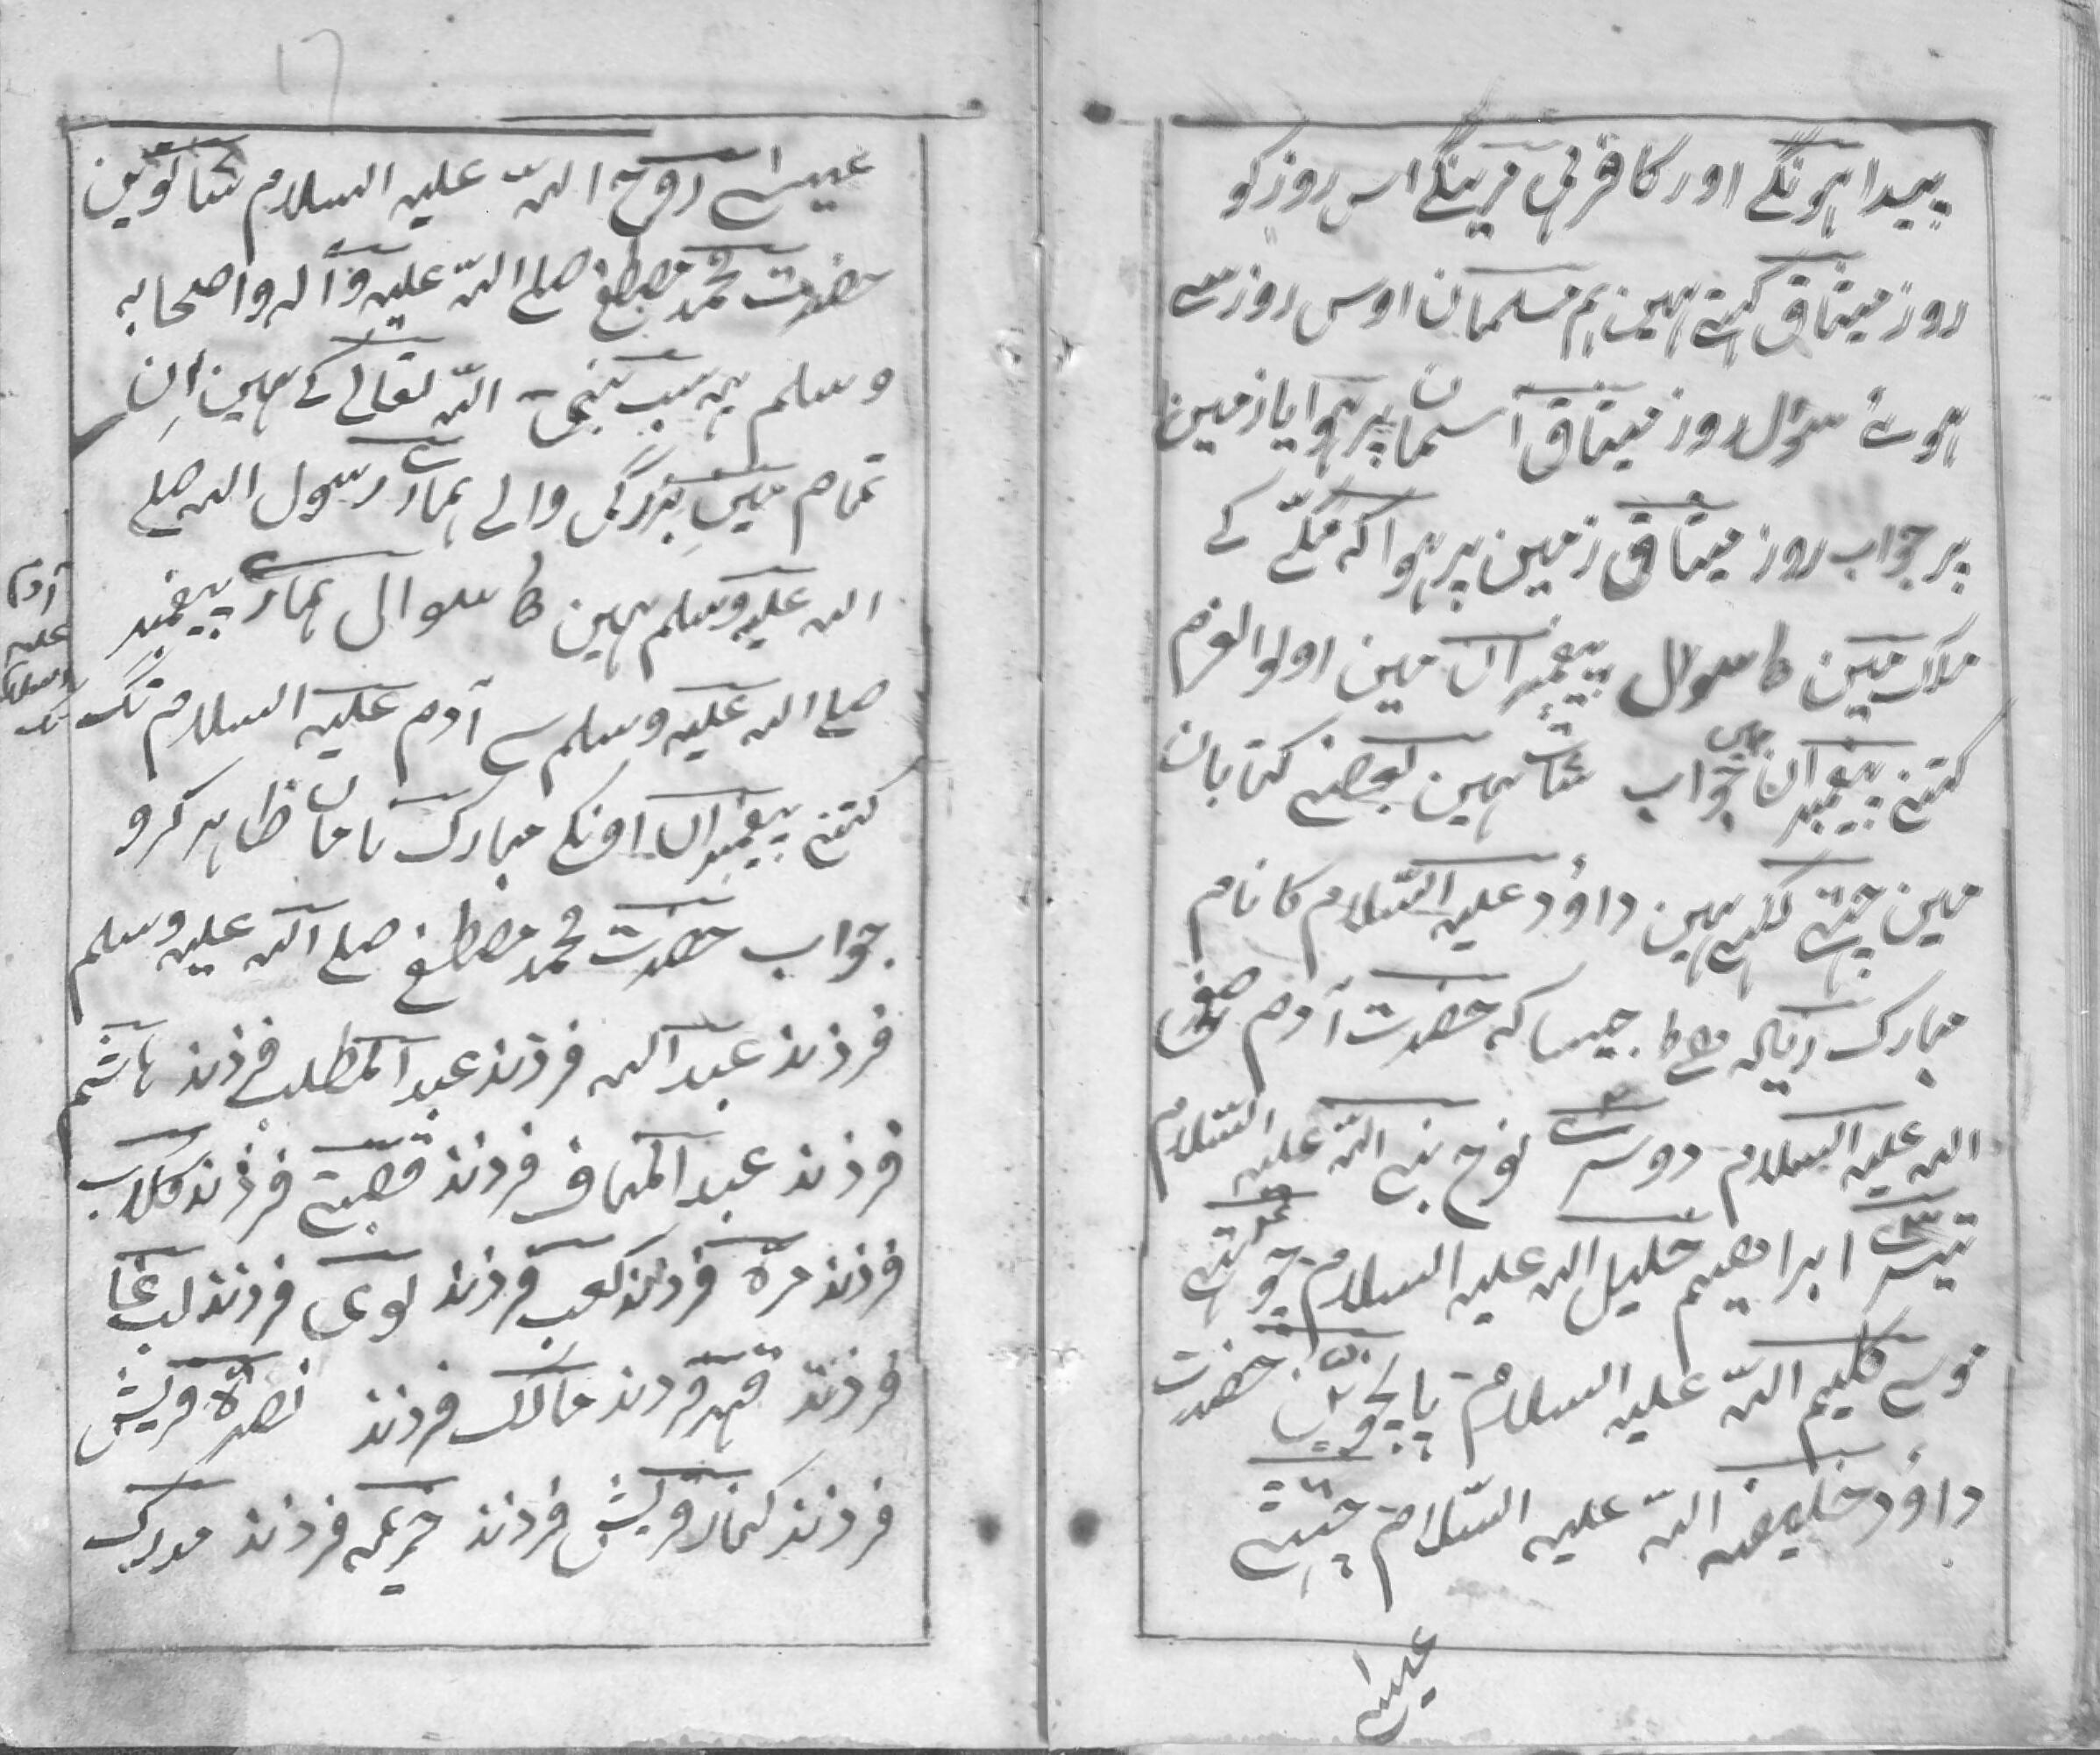 پیدا ہونگے اور کافر ہی مرینگے اس روز کو
روز میثاق کہتے ہین ہم مسلمان اوس روز سے
ہوئے سؤال روز میثاق آسمان پر ہوا یا زمین
پر جواب روز میثاق زمین پر ہوا کہ مکّے کے
ملک مین کا سوال پیغمبران مین اولوالعزم
کتنے پیغمبران ہیں جواب سات ہین بعضے کتابان
مین چتے لکہے ہین داؤد علیہ السّلام کا نام
مبارک زیکہ جیسا کہ حضرت آدم صفی
اللہ علیہ السلام دوسرے ۲ نوح نبی اللہ علیہ السّلام
تیسرے ۳ ابراھیم خلیل اللہ علیہ السلام چوتہے ۴
موسے کلیم اللہ علیہ السلام پانچویں ۵ حضرت
داؤد خلیفہ اللہ علیہ السّلام چتے ۶
عیسیٰ
۱۷
عیسیٰ روح اللہ علیہ السلام ساتویں
حضرت محمد مصطفے صلے اللہ علیہ وآلہ واصحابہ
وسلم یہ سب نبی اللہ تعالے کے ہین اِن
تمام میں بزرگی والے ہمارے رسول اللہ صلے
اللہ علیہ وسلم ہین کا سوال ہمارے پیغمبر
صلے اللہ علیہ وسلم سے آدم علیہ السلام تک
آدم
علیہ
السلام
تک
کتنے پیغمبراں اونکے مبارک نامان ظاہر کرو
جواب حضرت محمد مصطفے صلے اللہ علیہ وسلم
فرزند عبد اللہ فرزند عبد المطلب فرزند ہاشم
فرزند عبد المناف فرزند قصیٰ فرزند کلاب
فرزند مرہ فرزند کعب فرزند لوی فرزند
فرزند فہر فرزند مالک فرزند نصرہ قریش
فرزند کنانہ قریش فرزند خزیمہ فرزند مدرک